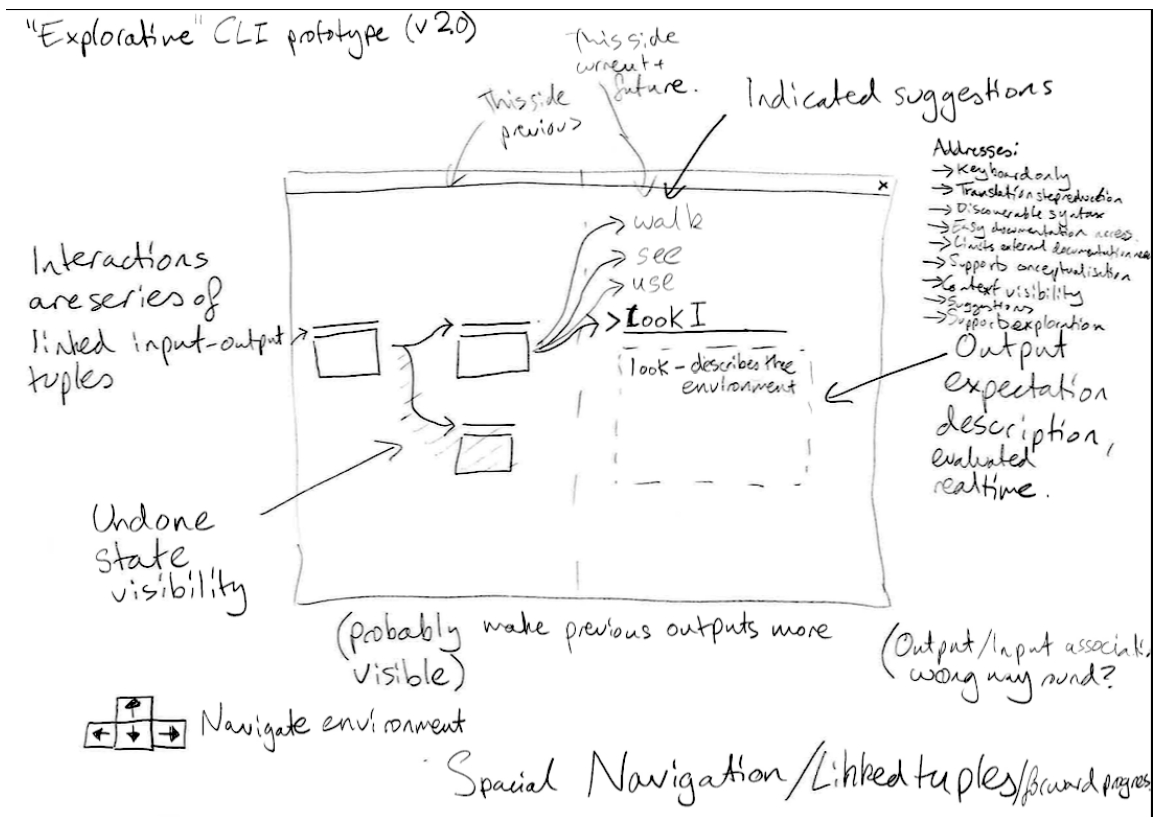 "Explorative" CLI prototype (v 2.0)
This side
current +
future.
This side
previous
Indicated suggestions
Addresses:
→ Keyboard only
→ Translation step reduction
→ Discoverable syntax
→ Easy documentation access.
→ Limits external documentation need
→ Supports conceptualisation
→ Context visibility
→ Suggestions
→ Supports exploration
x
walk
see
use
> look I
look - describes the
environment
Interactions
are series of
linked input-output
tuples
Output
expectation
description,
evaluated
realtime.
Undone
state
visibility
(probably make previous outputs more
visible)
(Output/Input associati
wrong way round?
Navigate environment
Spacial Navigation/Linked tuples/forward progres